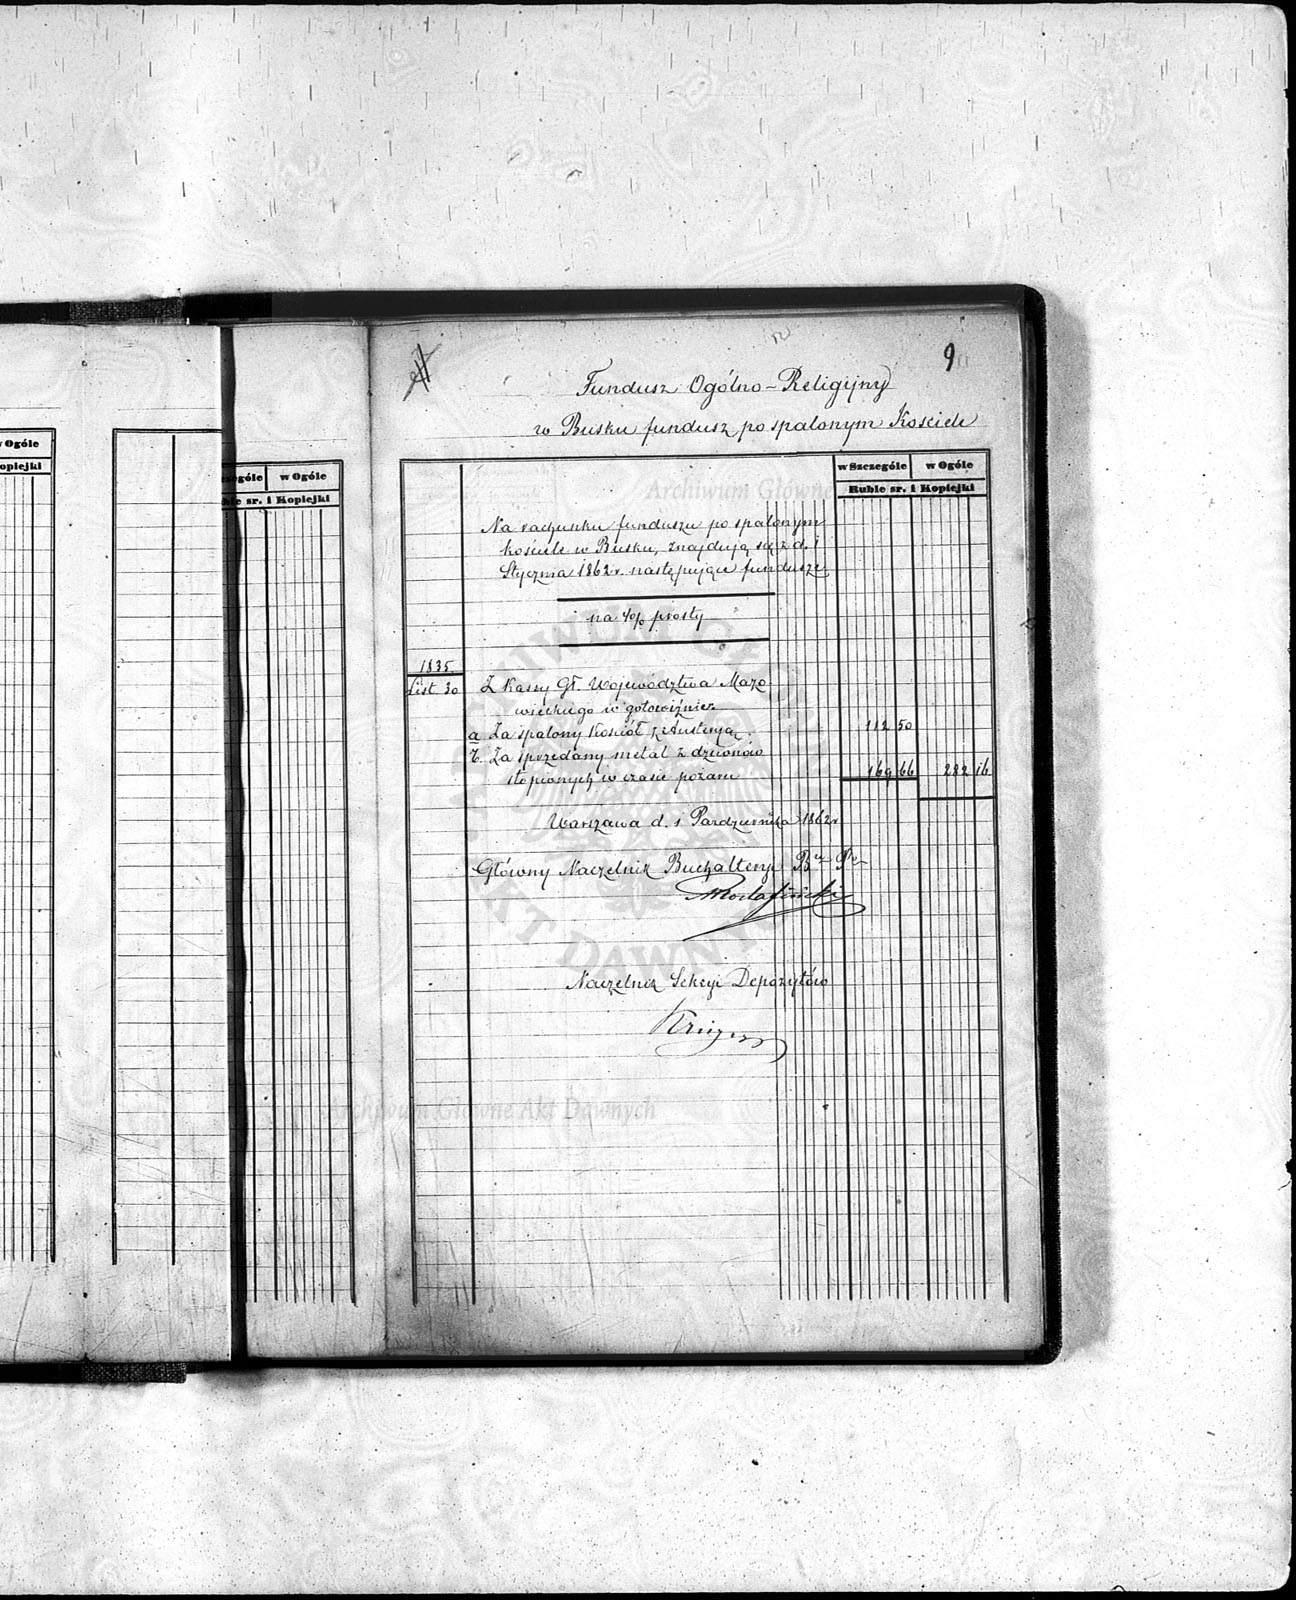 9
Fundusz Ogólno-Religijny
w Busku fundusz po spalonym Kościele
w Ogóle
Kopiejki
w Ogóle
Ruble sr. i Kopiejki
w Szczególe w Ogóle
Ruble sr. i Kopiejki
Archiwum Główne
Na rachunku funduszu po spalonym
kościele w Busku, znajdują się z d. 1
Stycznia 1862 r. następujące fundusze
na 4% prosty
1835.
List. 30 Z Kassy Gł. Województwa Mazo-
wieckiego w gotowiźnie
a Za spalony Kościół z Austeryą. 112 50
b. Za sprzedany metal z dzwonów
stopionych w czasie pożaru 169 66 282 16
Warszawa d. 1 Października 1862 r
Główny Naczelnik Buchalteryi
Naczelnik Sekcyi Depozytów
Archiwum Główne Akt Dawnych
ARCHIWUM GŁÓWNE AKT DAWNYCH